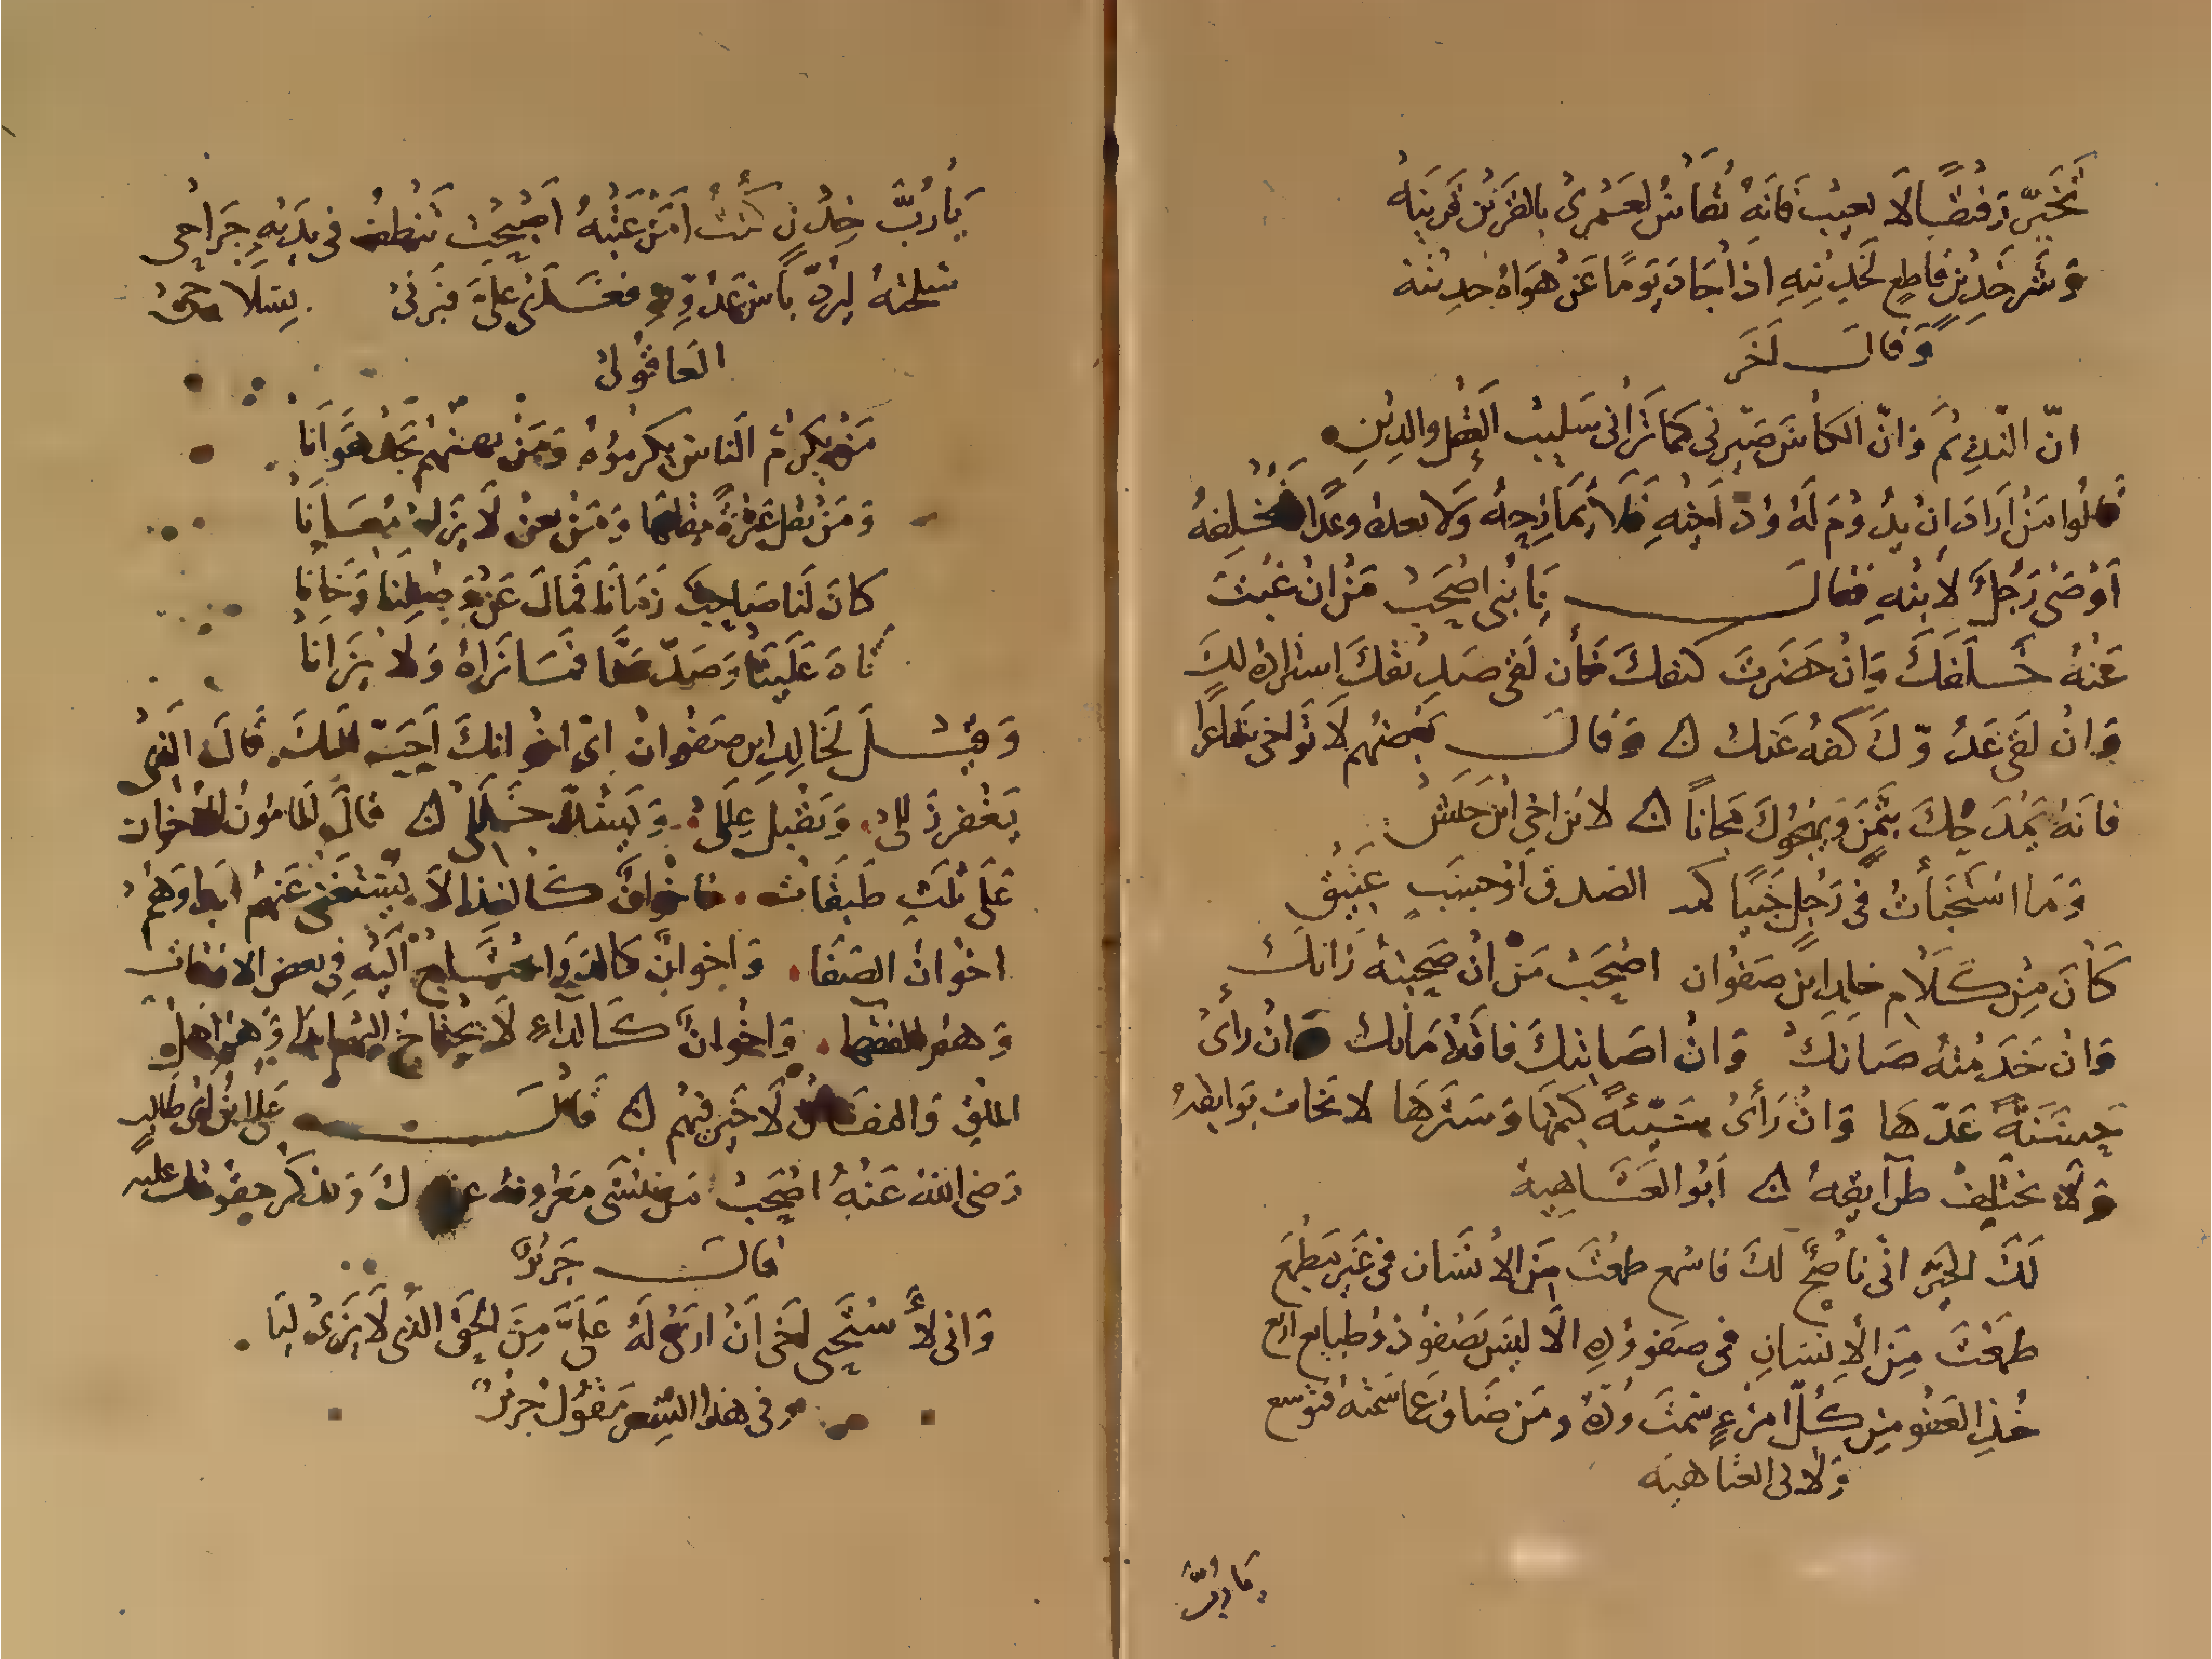 تَخَيَّر رَفيقًا لا يعيب فانه يُقاسُ لعَمْرِي بالقَرين قَرينَهُ
وَشَرّ خَدِينٍ قاطع لخَدِينِهِ اذا جَادَ يَومًا عَنْ هَوَاهُ خدينه
وَقَالَ آخَر
انّ النّديم وانّ الكأسَ صَيّرني كما تَراني سَليبَ العَقل والدِينِ
قالُوا مَنْ ارَادَ انْ يدُومَ لَهُ وُدّ اخِيْهِ فَلَا يُمَازِحِهُ وَلا يعدهُ وعْدًا فيُخْلِفهُ
اَوْصَى رَجُلٌ لابنِهِ فقال يَا بُنَى اصْحَبْ مَنْ انْ غبْتَ
عَنْهُ خَلَفَكَ وَانْ حَضَرتَ كنفكَ وان لَقى صَدِيقكَ استزادهُ لكَ
وَانْ لقى عَدُوّكَ كفهُ عَنك ۞ وَقَالَ بَعْضهُم لَا تُواخى شاعرًا
فانهُ يَمْدَحُكَ بثَمَنٍ وَيهجُوكَ مَجانًا ۞ لابْن اخي ابْن
وَمَا اسْتَخْبَأتُ في رَجُلٍ خَبيًا كمد الصدق او حسبٍ عَتيْق
كَانَ مِنْ كَلَام خالد ابن صَفْوان اصْحَبْ مَنْ انْ صَحِبتهُ زانكَ
وَانْ خَدَمْتهُ صَانكَ وَانْ اصَابتكَ فاقة مَانكَ وانْ رأىْ
حَسَنَةً عَدّهَا وَانْ رَأىْ سَيّئةً كتمَهَا وَسَتَرهَا لا تخاف بَوايقهُ
وَلَا تختلفْ طرآيقهُ ۞ اَبُو العَتَاهِية
لَكَ الخَيْر انّى ناصحٌ لكَ فاسْمع طمعْتَ مِنَ الانْسَان في غَير مَطْمَع
طَمعْتَ مِنَ الانسَانِ في صفو وُدّهِ الا لَيسَ يَصْفوْ ذوْ طبايع اربع
خُذِ العَفْو مِنْ كلّ امْرءٍ سُمْتَ وُدّهُ ومَن ضَاق عَما سُمتهُ فتوسع
وَلابى العتاهيه
يَا رُبَّ
يَا رُبَّ خِدْنٍ كُنْتُ امَنْ غَيْبَهُ اَصْبَحَتْ تَنْطفُ في يَدَيْهِ جَرَاحى
سَلّحْتهُ لِيَرُدّ بَأس عَدُوِّهِ فعَدَى عَلَىَّ فَبَزنى بِسلَاحى
العَاقُولى
مَنْ يُكرمُ الناسَ يكرِمُوْهُ وَمَنْ يهنهُم يَجِدْ هَوَانَا
وَمَنْ يقل عَثرةً يقلهَا وَمَنْ يعنْ لا يزل مُعَانَا
كانَ لَنا صَاحِبٌ زَمانًا فَمالَ عَنْ وَصْلِنَا وَخَانَا
تاهَ عَلَيْنَا وَصَدّ عَنّا فَمَا نَراهُ وَلا يَرَانَا
وَقِيْلَ لخَالِدِ ابن صَفْوانْ اىّ اخْوانكَ اَحَبّ اليكَ قَالَ الّذِى
يَغْفر زَللى وَيقْبل عِلَلىْ وَيَسُدّ خَلَلى ۞ قالَ المامُون الاخْوان
عَلى ثَلث طَبَقَات فاخْوانٌ كالغِذَا لَا يُسْتَغنى عَنهمُ ابدًا وَهُمْ
اخوانْ الصَفَا وَاخوانٌ كالدَوا يحْتَاجُ الَيهِ في بعض الاوقات
وَهم الفقهَا وَاخْوانٌ كَالدآءِ لا يحْتَاجُ اليْهم ابدًا وَهُم اهل
المَلق وَالنفَاق لا خَيْر فيهُم ۞ قَالَ عَلى ابْن ابى طالبٍ
رَضى اللهُ عَنهُ اصْحَبْ مَن يَنْسَى مَعْروفهُ عندكَ وَيذكر حقوقكَ عليه
قالَ جَريْرٌ
وَانى لأسْتَحيى اخى انْ ارَىْ لَهُ عَلَىَّ مِنَ الحَقّ الذى لَا يَرَىْ لِيَا
وفى هذا الشعر يَقُولُ جَريْرٌ